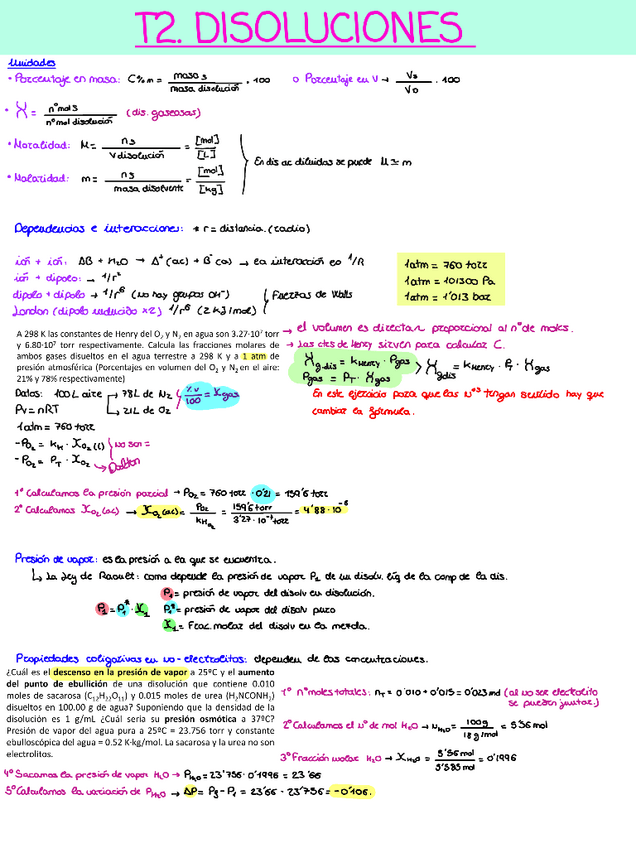 T2. DISOLUCIONES
Unidades
• Porcentaje en masa: C% m = masa s / masa disolución . 100 o Porcentaje en V → Vs / VD . 100
• X = nº mol s / nº mol disolución (dis. gaseosas)
• Moralidad: M = ns / V disolución = [mol] / [L]
En dis ac diluidas se puede M ≃ m
• Molaridad: m = ns / masa disolvente = [mol] / [kg]
Dependencias e interacciones: * r = distancia. (radio)
ión + ión: AB + H2O → A+ (ac) + B- (ac) → la interacción es 1/R
ión + dipolo: → 1/r²
dipolo + dipolo → 1/r⁶ (no hay grupos OH⁻)
Fuerzas de Walls
London (dipolo inducido x2) 1/r⁶ (2 kJ/mol)
1atm = 760 torr
1atm = 101300 Pa
1atm = 1'013 bar
A 298 K las constantes de Henry del O2 y N2 en agua son 3.27·10⁷ torr
y 6.80·10⁷ torr respectivamente. Calcula las fracciones molares de
ambos gases disueltos en el agua terrestre a 298 K y a 1 atm de
presión atmosférica (Porcentajes en volumen del O2 y N2 en el aire:
21% y 78% respectivamente)
→ el volumen es directam. proporcional al nº de moles.
→ Las ctes de Henry sirven para calcular C.
Xg.dis = KHenry · Pgas
Pgas = PT · Xgas
Xgdis = KHenry · PT · Xgas
En este ejercicio para que las nºs tengan sentido hay que
cambiar la fórmula.
Datos: 100L aire → 78L de N2
→ 21L de O2
%V / 100 = Xgas
PV = nRT
1atm = 760 torr
- PO2 = KH · XO2 (l)
no son =
- PO2 = PT · XO2 → Dalton
1º Calculamos la presión parcial → PO2 = 760 torr · 0'21 = 159'6 torr
2º Calculamos XO2(ac) → XO2(ac) = PO2 / KHO2 = 159'6 torr / 3'27·10⁻⁷ torr = 4'88·10⁻⁶
Presión de vapor: es la presión a la que se encuentra.
↳ La ley de Raoult: como depende la presión de vapor P1 de un disolv. líq de la comp de la dis.
P1 = P1* · X1
P1 = presión de vapor del disolv en disolución.
P1* = presión de vapor del disolv puro
X1 = Frac. molar del disolv en la mezcla.
Propiedades coligativas en no-electrolitos: dependen de las concentraciones.
¿Cuál es el descenso en la presión de vapor a 25ºC y el aumento
del punto de ebullición de una disolución que contiene 0.010
moles de sacarosa (C12H22O11) y 0.015 moles de urea (H2NCONH2)
disueltos en 100.00 g de agua? Suponiendo que la densidad de la
disolución es 1 g/mL ¿Cuál sería su presión osmótica a 37ºC?
Presión de vapor del agua pura a 25ºC = 23.756 torr y constante
ebulloscópica del agua = 0.52 K·kg/mol. La sacarosa y la urea no son
electrolitos.
1º nº moles totales: nT = 0'010 + 0'015 = 0'023 md (al no ser electrolito
se pueden juntar)
2º Calculamos el nº de mol H2O → nH2O = 100g / 18 g/mol = 5'56 mol
3º Fracción molar H2O → XH2O = 5'56 mol / 5'585 mol = 0'1996
4º Sacamos la presión de vapor H2O → PH2O = 23'756 · 0'1996 = 23'66
5º Calculamos la variación de PH2O → ΔP = P2 - P1 = 23'66 - 23'756 = -0'106.